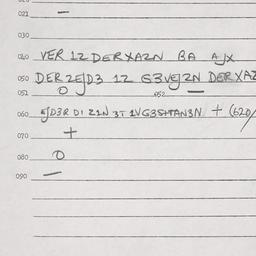 021 —
030
040 VER 1Z DERXAZN BA AJX
050 DERZEJD3 1Z G3VEJZN DERXAZ
051 O 052 —
060 EJD3R DI Z1N 3T 1VG3SHTAN3N + (620/
070 +
080 O
090 —